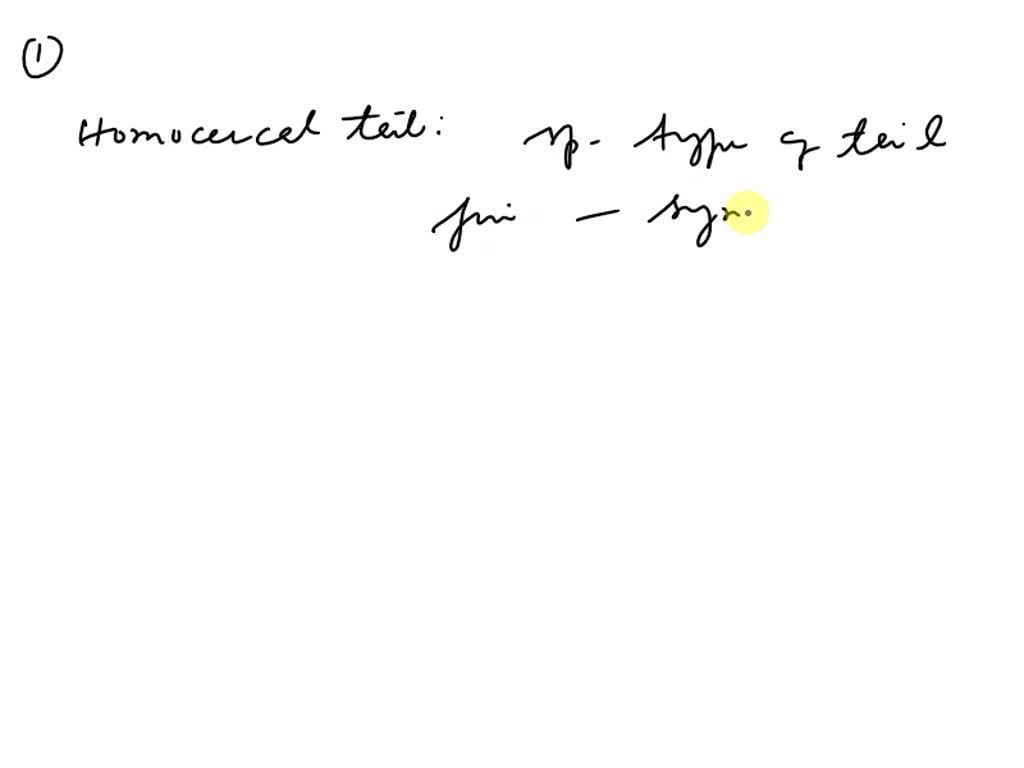 ①
Homocercal tail: sp. type of tail
fin – sym